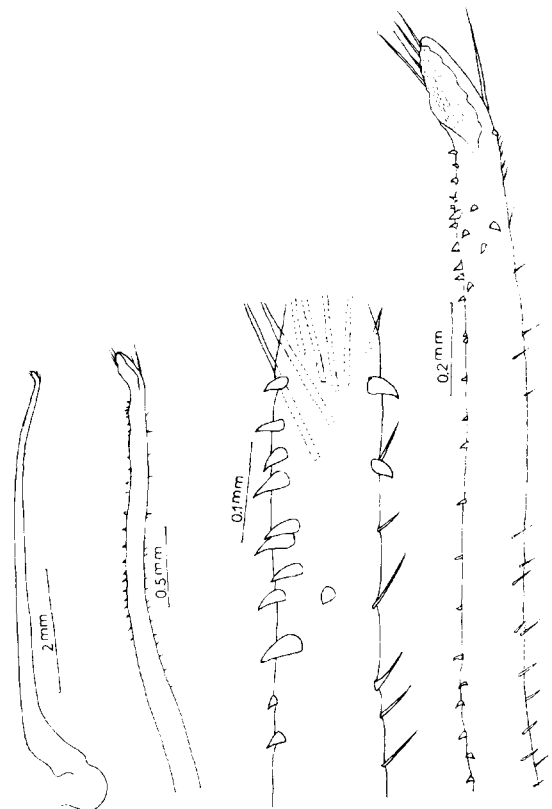 2 mm
0.5 mm
0.1 mm
0.2 mm